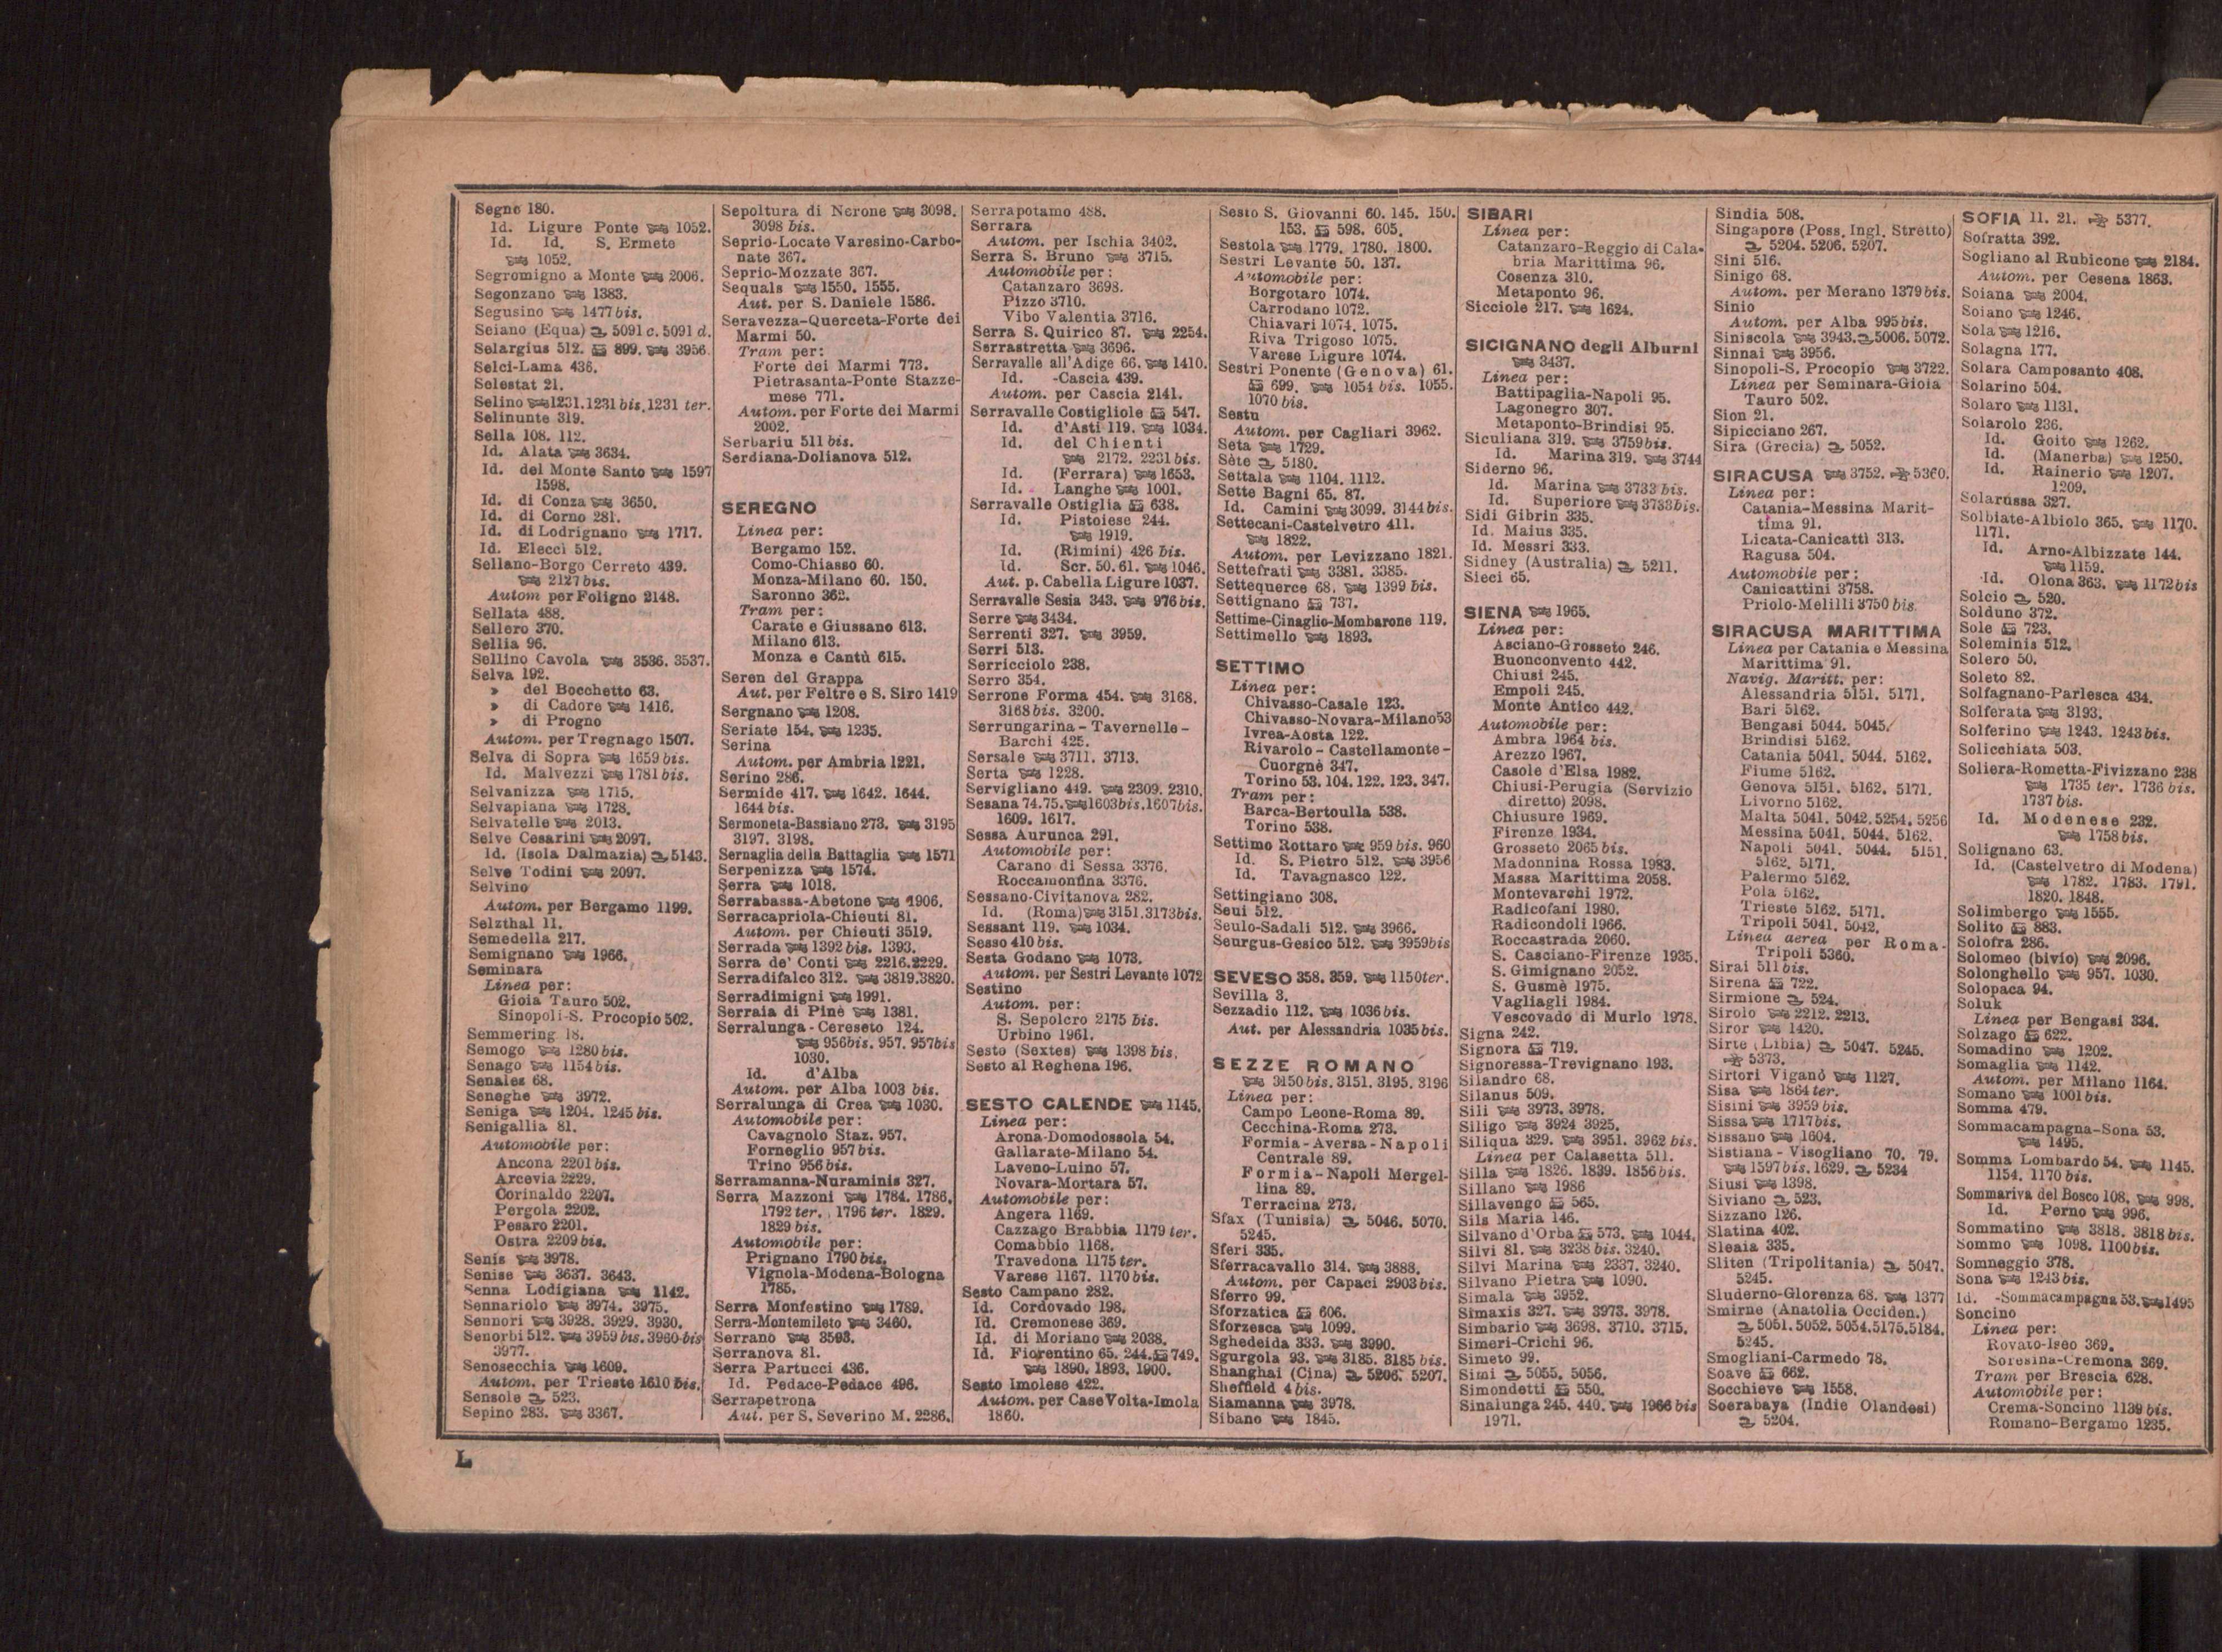 Segno 180.
Id. Ligure Ponte 1052.
Id. Id. S. Ermete
1052.
Segromigno a Monte 2006.
Segonzano 1383.
Segusino 1477 bis.
Seiano (Equa) 5091 c. 5091 d.
Selargius 512. 899. 3956
Selci-Lama 436.
Selestat 21.
Selino 1231. 1231 bis, 1231 ter.
Selinunte 319.
Sella 108. 112.
Id. Alata 3634.
Id. del Monte Santo 1597
1598.
Id. di Conza 3650.
Id. di Corno 281.
Id. di Lodrignano 1717.
Id. Elecci 512.
Sellano-Borgo Cerreto 439.
2127 bis.
Autom per Foligno 2148.
Sellata 488.
Sellero 370.
Sellia 96.
Sellino Cavola 3536. 3537.
Selva 192.
» del Bocchetto 63.
» di Cadore 1416.
» di Progno
Autom. per Tregnago 1507.
Selva di Sopra 1659 bis.
Id. Malvezzi 1781 bis.
Selvanizza 1715.
Selvapiana 1728.
Selvatelle 2013.
Selve Cesarini 2097.
Id. (Isola Dalmazia) 5143.
Selve Todini 2097.
Selvino
Autom. per Bergamo 1199.
Selzthal 11.
Semedella 217.
Semignano 1966.
Seminara
Linea per:
Gioia Tauro 502.
Sinopoli-S. Procopio 502.
Semmering 18.
Semogo 1280 bis.
Senago 1154 bis.
Senales 68.
Seneghe 3972.
Seniga 1204. 1245 bis.
Senigallia 81.
Automobile per:
Ancona 2201 bis.
Arcevia 2229.
Corinaldo 2207.
Pergola 2202.
Pesaro 2201.
Ostra 2209 bis.
Senis 3978.
Senise 3637. 3643.
Senna Lodigiana 1142.
Sennariolo 3974. 3975.
Sennori 3928. 3929. 3930.
Senorbi 512. 3959 bis. 3960 bis
3977.
Senosecchia 1609.
Autom. per Trieste 1610 bis.
Sensole 523.
Sepino 283. 3367.
Sepoltura di Nerone 3098.
3098 bis.
Seprio-Locate Varesino-Carbo-
nate 367.
Seprio-Mozzate 367.
Sequals 1550. 1555.
Aut. per S. Daniele 1586.
Seravezza-Querceta-Forte dei
Marmi 50.
Tram per:
Forte dei Marmi 773.
Pietrasanta-Ponte Stazze-
mese 771.
Autom. per Forte dei Marmi
2002.
Serbariu 511 bis.
Serdiana-Dolianova 512.
SEREGNO
Linea per:
Bergamo 152.
Como-Chiasso 60.
Monza-Milano 60. 150.
Saronno 362.
Tram per:
Carate e Giussano 613.
Milano 613.
Monza e Cantù 615.
Seren del Grappa
Aut. per Feltre e S. Siro 1419
Sergnano 1208.
Seriate 154. 1235.
Serina
Autom. per Ambria 1221.
Serino 286.
Sermide 417. 1642. 1644.
1644 bis.
Sermoneta-Bassiano 273. 3195
3197. 3198.
Sernaglia della Battaglia 1571
Serpenizza 1574.
Serra 1018.
Serrabassa-Abetone 1906.
Serracapriola-Chieuti 81.
Autom. per Chieuti 3519.
Serrada 1392 bis. 1393.
Serra de' Conti 2216. 2229.
Serradifalco 312. 3819. 3820.
Serradimigni 1991.
Serraia di Pinè 1381.
Serralunga-Cereseto 124.
956 bis. 957. 957 bis
1030.
Id. d'Alba
Autom. per Alba 1003 bis.
Serralunga di Crea 1030.
Automobile per:
Cavagnolo Staz. 957.
Forneglio 957 bis.
Trino 956 bis.
Serramanna-Nuraminis 327.
Serra Mazzoni 1784. 1786.
1792 ter. 1796 ter. 1829.
1829 bis.
Automobile per:
Prignano 1790 bis.
Vignola-Modena-Bologna
1785.
Serra Monfestino 1789.
Serra-Montemileto 3460.
Serrano 3593.
Serranova 81.
Serra Partucci 436.
Id. Pedace-Pedace 496.
Serrapetrona
Aut. per S. Severino M. 2286.
Serrapotamo 488.
Serrara
Autom. per Ischia 3402.
Serra S. Bruno 3715.
Automobile per:
Catanzaro 3698.
Pizzo 3710.
Vibo Valentia 3716.
Serra S. Quirico 87. 2254.
Serrastretta 3696.
Serravalle all'Adige 66. 1410.
Id. -Cascia 439.
Autom. per Cascia 2141.
Serravalle Costigliole 547.
Id. d'Asti 119. 1034.
Id. del Chienti
2172. 2231 bis.
Id. (Ferrara) 1653.
Id. Langhe 1001.
Serravalle Ostiglia 638.
Id. Pistoiese 244.
1919.
Id. (Rimini) 426 bis.
Id. Scr. 50. 61. 1046.
Aut. p. Cabella Ligure 1037.
Serravalle Sesia 343. 976 bis.
Serre 3434.
Serrenti 327. 3959.
Serri 513.
Serricciolo 238.
Serro 354.
Serrone Forma 454. 3168.
3168 bis. 3200.
Serrungarina-Tavernelle-
Barchi 425.
Sersale 3711. 3713.
Serta 1228.
Servigliano 449. 2309. 2310.
Sesana 74. 75. 1603 bis, 1607 bis.
1609. 1617.
Sessa Aurunca 291.
Automobile per:
Carano di Sessa 3376.
Roccamonfina 3376.
Sessano-Civitanova 282.
Id. (Roma) 3151. 3173 bis.
Sessant 119. 1034.
Sesso 410 bis.
Sesta Godano 1073.
Autom. per Sestri Levante 1072
Sestino
Autom. per:
S. Sepolcro 2175 bis.
Urbino 1961.
Sesto (Sextes) 1398 bis.
Sesto al Reghena 196.
SESTO CALENDE 1145.
Linea per:
Arona-Domodossola 54.
Gallarate-Milano 54.
Laveno-Luino 57.
Novara-Mortara 57.
Automobile per:
Angera 1169.
Cazzago Brabbia 1179 ter.
Comabbio 1168.
Travedona 1175 ter.
Varese 1167. 1170 bis.
Sesto Campano 282.
Id. Cordovado 198.
Id. Cremonese 369.
Id. di Moriano 2038.
Id. Fiorentino 65. 244. 749.
1890. 1893. 1900.
Sesto Imolese 422.
Autom. per Case Volta-Imola
1860.
Sesto S. Giovanni 60. 145. 150.
153. 598. 605.
Sestola 1779. 1780. 1800.
Sestri Levante 50. 137.
Automobile per:
Borgotaro 1074.
Carrodano 1072.
Chiavari 1074. 1075.
Riva Trigoso 1075.
Varese Ligure 1074.
Sestri Ponente (Genova) 61.
699. 1054 bis. 1055.
1070 bis.
Sestu
Autom. per Cagliari 3962.
Seta 1729.
Sète 5180.
Settala 1104. 1112.
Sette Bagni 65. 87.
Id. Camini 3099. 3144 bis.
Settecani-Castelvetro 411.
1822.
Autom. per Levizzano 1821.
Settefrati 3381. 3385.
Settequerce 68. 1399 bis.
Settignano 737.
Settime-Cinaglio-Mombarone 119.
Settimello 1893.
SETTIMO
Linea per:
Chivasso-Casale 123.
Chivasso-Novara-Milano 53
Ivrea-Aosta 122.
Rivarolo-Castellamonte-
Cuorgnè 347.
Torino 53. 104. 122. 123. 347.
Tram per:
Barca-Bertoulla 538.
Torino 538.
Settimo Rottaro 959 bis. 960
Id. S. Pietro 512. 3956
Id. Tavagnasco 122.
Settingiano 308.
Seui 512.
Seulo-Sadali 512. 3966.
Seurgus-Gesico 512. 3959 bis
SEVESO 358. 359. 1150 ter.
Sevilla 3.
Sezzadio 112. 1036 bis.
Aut. per Alessandria 1035 bis.
SEZZE ROMANO
3150 bis. 3151. 3195. 3196
Linea per:
Campo Leone-Roma 89.
Cecchina-Roma 273.
Formia-Aversa-Napoli
Centrale 89.
Formia-Napoli Mergel-
lina 89.
Terracina 273.
Sfax (Tunisia) 5046. 5070.
5245.
Sferi 335.
Sferracavallo 314. 3888.
Autom. per Capaci 2903 bis.
Sferro 99.
Sforzatica 606.
Sforzesca 1099.
Sghedeida 333. 3990.
Sgurgola 93. 3185. 3185 bis.
Shanghai (Cina) 5206. 5207.
Sheffield 4 bis.
Siamanna 3978.
Sibano 1845.
SIBARI
Linea per:
Catanzaro-Reggio di Cala-
bria Marittima 96.
Cosenza 310.
Metaponto 96.
Sicciole 217. 1624.
SICIGNANO degli Alburni
3437.
Linea per:
Battipaglia-Napoli 95.
Lagonegro 307.
Metaponto-Brindisi 95.
Siculiana 319. 3759 bis.
Id. Marina 319. 3744
Siderno 96.
Id. Marina 3733 bis.
Id. Superiore 3733 bis.
Sidi Gibrin 335.
Id. Maius 335.
Id. Messri 333.
Sidney (Australia) 5211.
Sieci 65.
SIENA 1965.
Linea per:
Asciano-Grosseto 246.
Buonconvento 442.
Chiusi 245.
Empoli 245.
Monte Antico 442.
Automobile per:
Ambra 1964 bis.
Arezzo 1967.
Casole d'Elsa 1982.
Chiusi-Perugia (Servizio
diretto) 2098.
Chiusure 1969.
Firenze 1934.
Grosseto 2065 bis.
Madonnina Rossa 1983.
Massa Marittima 2058.
Montevarchi 1972.
Radicofani 1980.
Radicondoli 1966.
Roccastrada 2060.
S. Casciano-Firenze 1935.
S. Gimignano 2052.
S. Gusmè 1975.
Vagliagli 1984.
Vescovado di Murlo 1978.
Signa 242.
Signora 719.
Signoressa-Trevignano 193.
Silandro 68.
Silanus 509.
Sili 3973. 3978.
Siligo 3924 3925.
Siliqua 329. 3951. 3962 bis.
Linea per Calasetta 511.
Silla 1826. 1839. 1856 bis.
Sillano 1986
Sillavengo 565.
Sils Maria 146.
Silvano d'Orba 573. 1044.
Silvi 81. 3238 bis. 3240.
Silvi Marina 2337. 3240.
Silvano Pietra 1090.
Simala 3952.
Simaxis 327. 3973. 3978.
Simbario 3698. 3710. 3715.
Simeri-Crichi 96.
Simeto 99.
Simi 5055. 5056.
Simondetti 550.
Sinalunga 245. 440. 1966 bis
1971.
Sindia 508.
Singapore (Poss. Ingl. Stretto)
5204. 5206. 5207.
Sini 516.
Sinigo 68.
Autom. per Merano 1379 bis.
Sinio
Autom. per Alba 995 bis.
Siniscola 3943. 5006. 5072.
Sinnai 3956.
Sinopoli-S. Procopio 3722.
Linea per Seminara-Gioia
Tauro 502.
Sion 21.
Sipicciano 267.
Sira (Grecia) 5052.
SIRACUSA 3752. 5360.
Linea per:
Catania-Messina Marit-
tima 91.
Licata-Canicattì 313.
Ragusa 504.
Automobile per:
Canicattini 3758.
Priolo-Melilli 3750 bis.
SIRACUSA MARITTIMA
Linea per Catania e Messina
Marittima 91.
Navig. Maritt. per:
Alessandria 5151. 5171.
Bari 5162.
Bengasi 5044. 5045.
Brindisi 5162.
Catania 5041. 5044. 5162.
Fiume 5162.
Genova 5151. 5162. 5171.
Livorno 5162.
Malta 5041. 5042. 5254. 5256
Messina 5041. 5044. 5162.
Napoli 5041. 5044. 5151.
5162. 5171.
Palermo 5162.
Pola 5162.
Trieste 5162. 5171.
Tripoli 5041. 5042.
Linea aerea per Roma-
Tripoli 5360.
Sirai 511 bis.
Sirena 722.
Sirmione 524.
Sirolo 2212. 2213.
Siror 1420.
Sirte (Libia) 5047. 5245.
5373.
Sirtori Viganò 1127.
Sisa 1864 ter.
Sisini 3959 bis.
Sissa 1717 bis.
Sissano 1604.
Sistiana-Visogliano 70. 79.
1597 bis. 1629. 5234
Siusi 1398.
Siviano 523.
Sizzano 126.
Slatina 402.
Sleaia 335.
Sliten (Tripolitania) 5047.
5245.
Sluderno-Glorenza 68. 1377
Smirne (Anatolia Occiden.)
5051. 5052. 5054. 5175. 5184.
5245.
Smogliani-Carmedo 78.
Soave 662.
Socchieve 1558.
Soerabaya (Indie Olandesi)
5204.
SOFIA 11. 21. 5377.
Sofratta 392.
Sogliano al Rubicone 2184.
Autom. per Cesena 1863.
Soiana 2004.
Soiano 1246.
Sola 1216.
Solagna 177.
Solara Camposanto 408.
Solarino 504.
Solaro 1131.
Solarolo 236.
Id. Goito 1262.
Id. (Manerba) 1250.
Id. Rainerio 1207.
1209.
Solarussa 327.
Solbiate-Albiolo 365. 1170.
1171.
Id. Arno-Albizzate 144.
1159.
Id. Olona 363. 1172 bis
Solcio 520.
Solduno 372.
Sole 723.
Soleminis 512.
Solero 50.
Soleto 82.
Solfagnano-Parlesca 434.
Solferata 3193.
Solferino 1243. 1243 bis.
Solicchiata 503.
Soliera-Rometta-Fivizzano 238
1735 ter. 1736 bis.
1737 bis.
Id. Modenese 232.
1758 bis.
Solignano 63.
Id. (Castelvetro di Modena)
1782. 1783. 1791.
1820. 1848.
Solimbergo 1555.
Solito 883.
Solofra 286.
Solomeo (bivio) 2096.
Solonghello 957. 1030.
Solopaca 94.
Soluk
Linea per Bengasi 334.
Solzago 622.
Somadino 1202.
Somaglia 1142.
Autom. per Milano 1164.
Somano 1001 bis.
Somma 479.
Sommacampagna-Sona 53.
1495.
Somma Lombardo 54. 1145.
1154. 1170 bis.
Sommariva del Bosco 108. 998.
Id. Perno 996.
Sommatino 3818. 3818 bis.
Sommo 1098. 1100 bis.
Somneggio 378.
Sona 1243 bis.
Id. -Sommacampagna 53. 1495
Soncino
Linea per:
Rovato-Iseo 369.
Soresina-Cremona 369.
Tram per Brescia 628.
Automobile per:
Crema-Soncino 1139 bis.
Romano-Bergamo 1235.
L